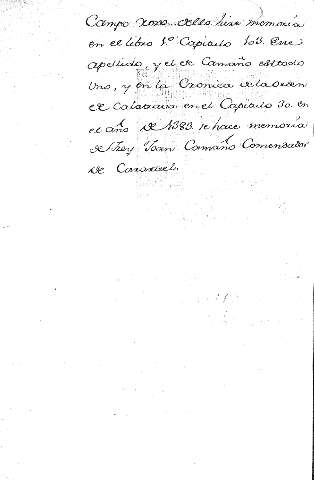 Campo Roxo dello hizo memoria
en el libro 1º Capitulo 103. Este
apellido, y el de Camaño es todo
uno, y en la Cronica de la orden
de Calatrava en el Capitulo 30. en
el año de 1383 se hace memoria
de Frey Joan Camaño Comendador
de Caracuel.